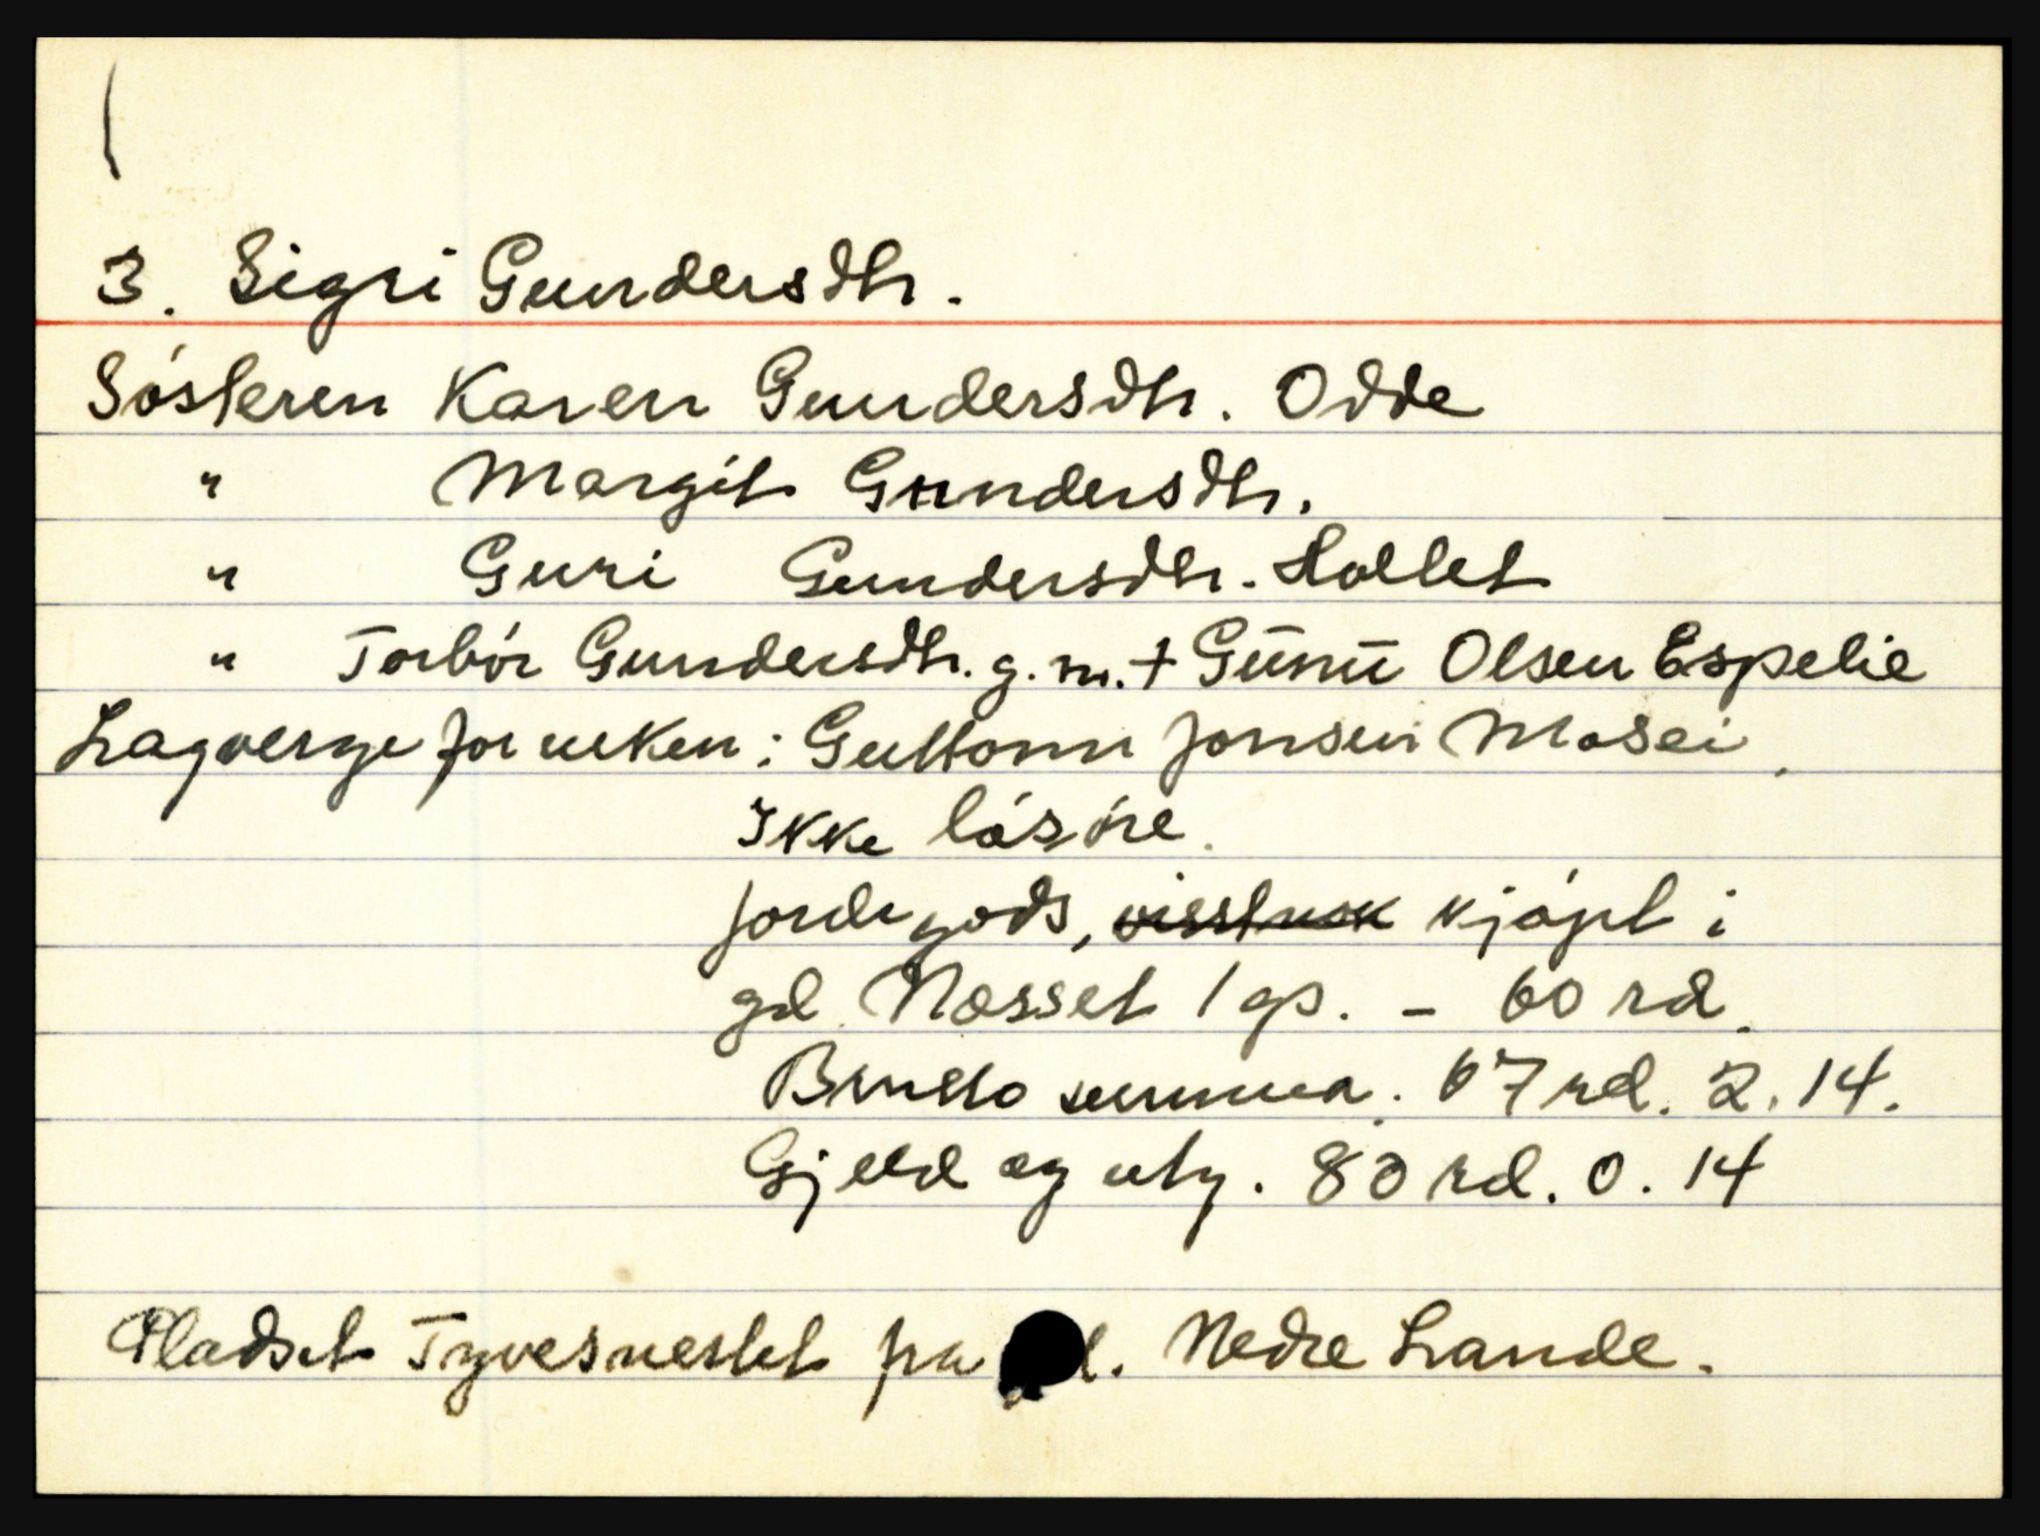 3. Sigri Gundersdtr.
Søsteren Karen Gundersdtr. Odde
" Margit Gundersdtr.
" Guri Gundersdtr. Holtet
" Torbór Gundersdtr. g. m. + Gūnū Olsen Espelie
Lagverge for enken: Guttorm Jonsen Mosei.
Ikke løsøre.
Jordegods, kjøpt i
gd. Næsset 1 gs. - 60 rd.
Brutto summa. 67 rd. 2. 14.
Gjeld og utg. 80 rd. 0. 14
Pladset Tyvesnestet på d. Nedre Lande.